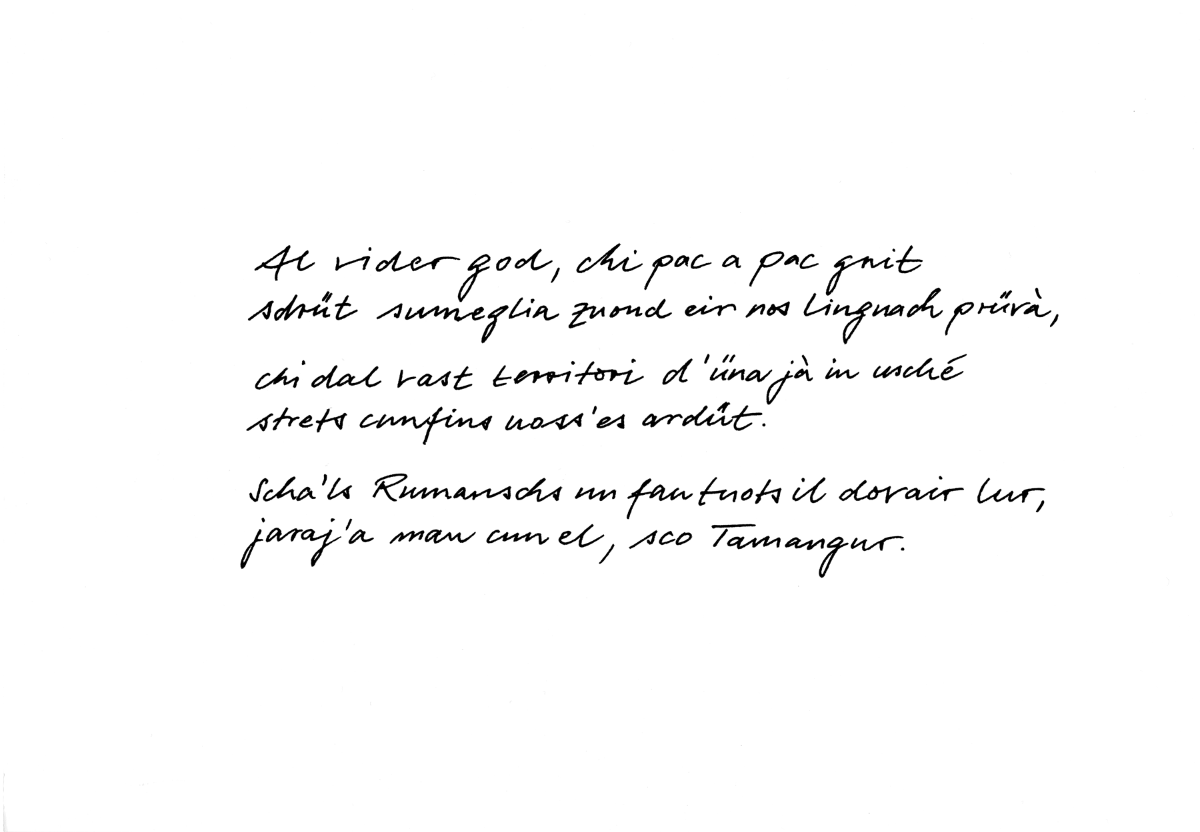 Al vider god, chi pac a pac gnit
sdrüt sumeglia zuond eir nos linguach prüvà,
chi dal vast territori d'üna jà in usché
strets cunfins uoss'es ardüt.
Scha'ls Rumanschs nu fan tuots il dovair lur,
jaraj'a man cun el, sco Tamangur.